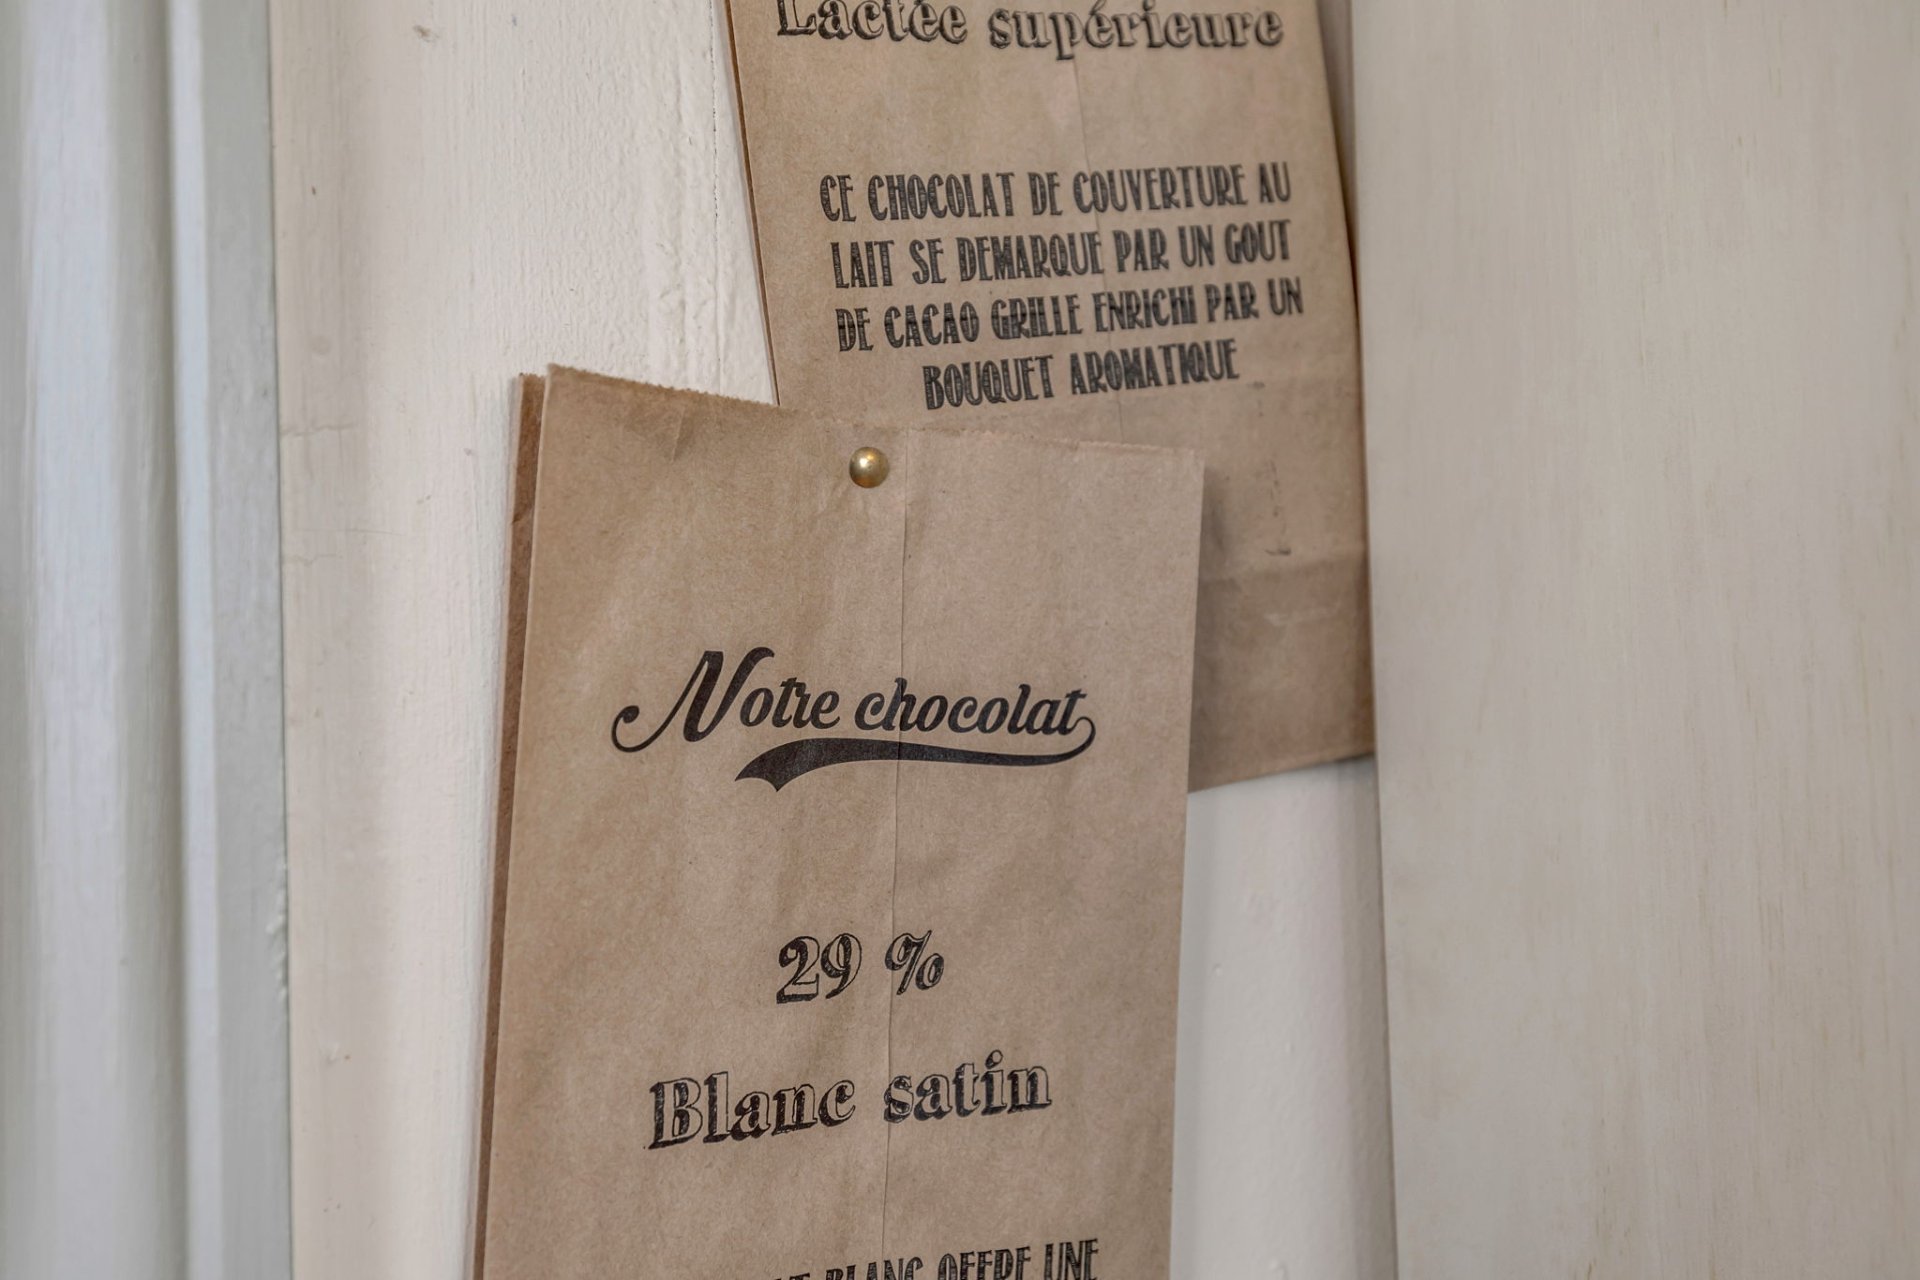 Lactée supérieure
CE CHOCOLAT DE COUVERTURE AU
LAIT SE DEMARQUE PAR UN GOUT
DE CACAO GRILLE ENRICHI PAR UN
BOUQUET AROMATIQUE
Notre chocolat
29 %
Blanc satin
BLANC OFFRE UNE